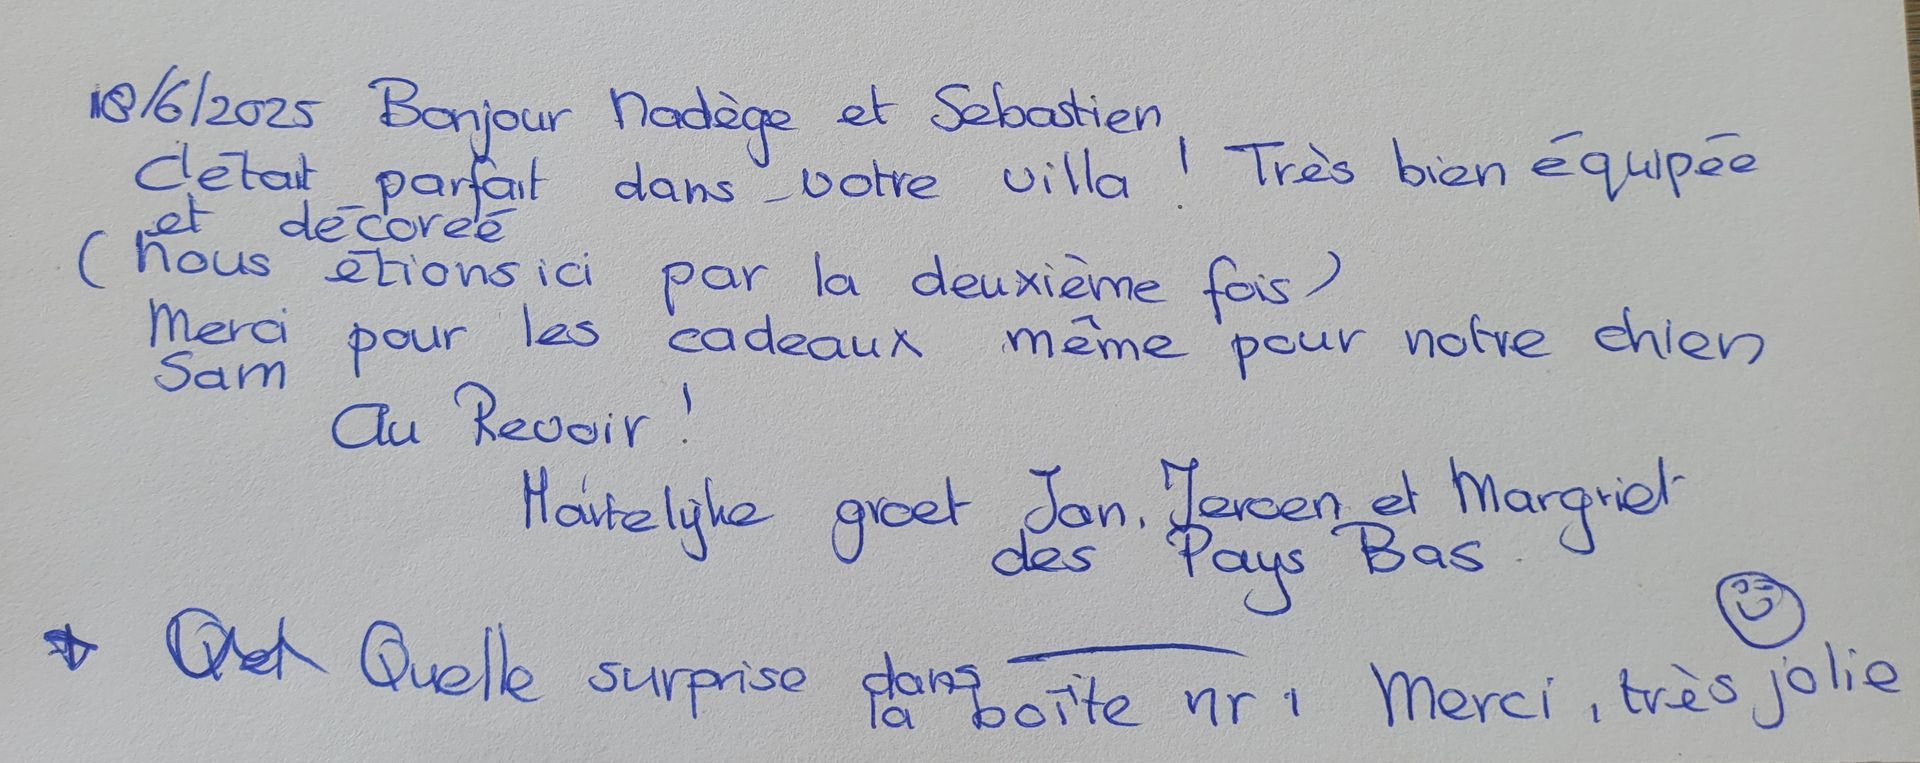 18/6/2025 Bonjour Nadège et Sebastien
C'était parfait dans votre villa ! Très bien équipée
et décoreé
(Nous étions ici par la deuxième fois)
Merci pour les cadeaux même pour notre chien
Sam
Au Revoir !
Hartelijke groet Jan, Jeroen et Margriet
des Pays Bas
Quelle surprise dans
la boîte nr 1 Merci, très jolie